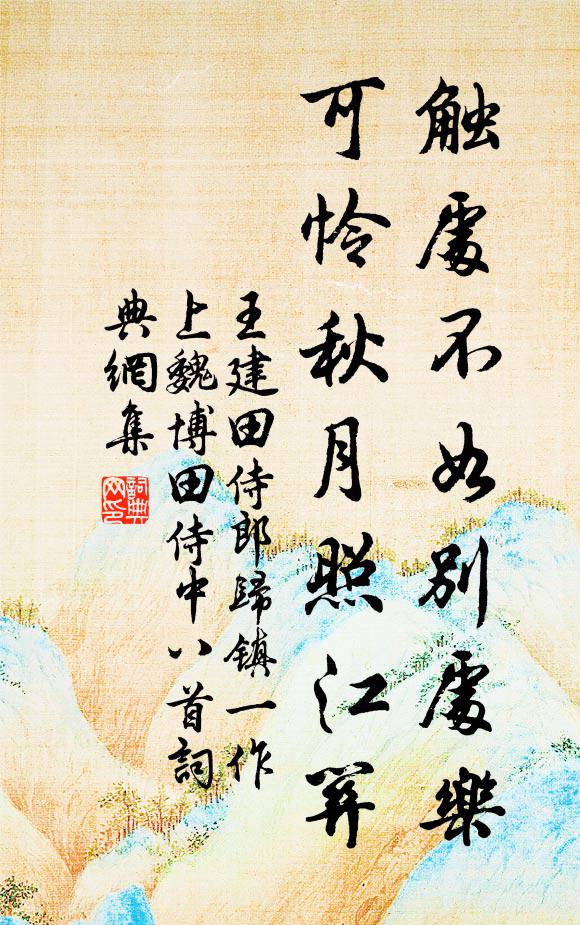 触處不如別處樂
可怜秋月照江關
王建田侍郎歸鎮一作
上魏博田侍中八首詞
典網集
詞典网印